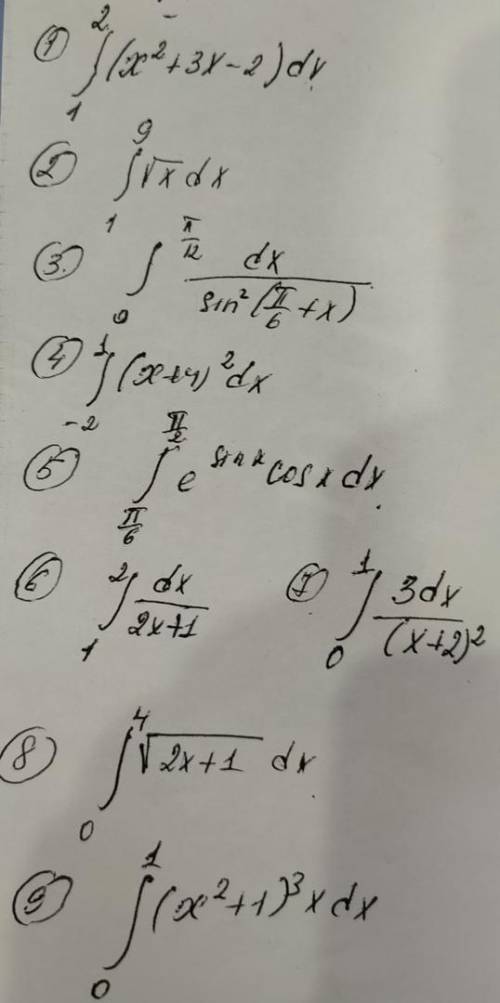 ① ∫₁² (x² + 3x - 2) dx
② ∫₁⁹ √x dx
③ ∫₀^(π/12) dx / sin²(π/6 + x)
④ ∫₋₂¹ (x+4)² dx
⑤ ∫_(π/6)^(π/2) e^(sin x) cos x dx
⑥ ∫₁² dx / (2x+1) ⑦ ∫₀¹ 3dx / (x+2)²
⑧ ∫₀⁴ √(2x+1) dx
⑨ ∫₀¹ (x²+1)³ x dx